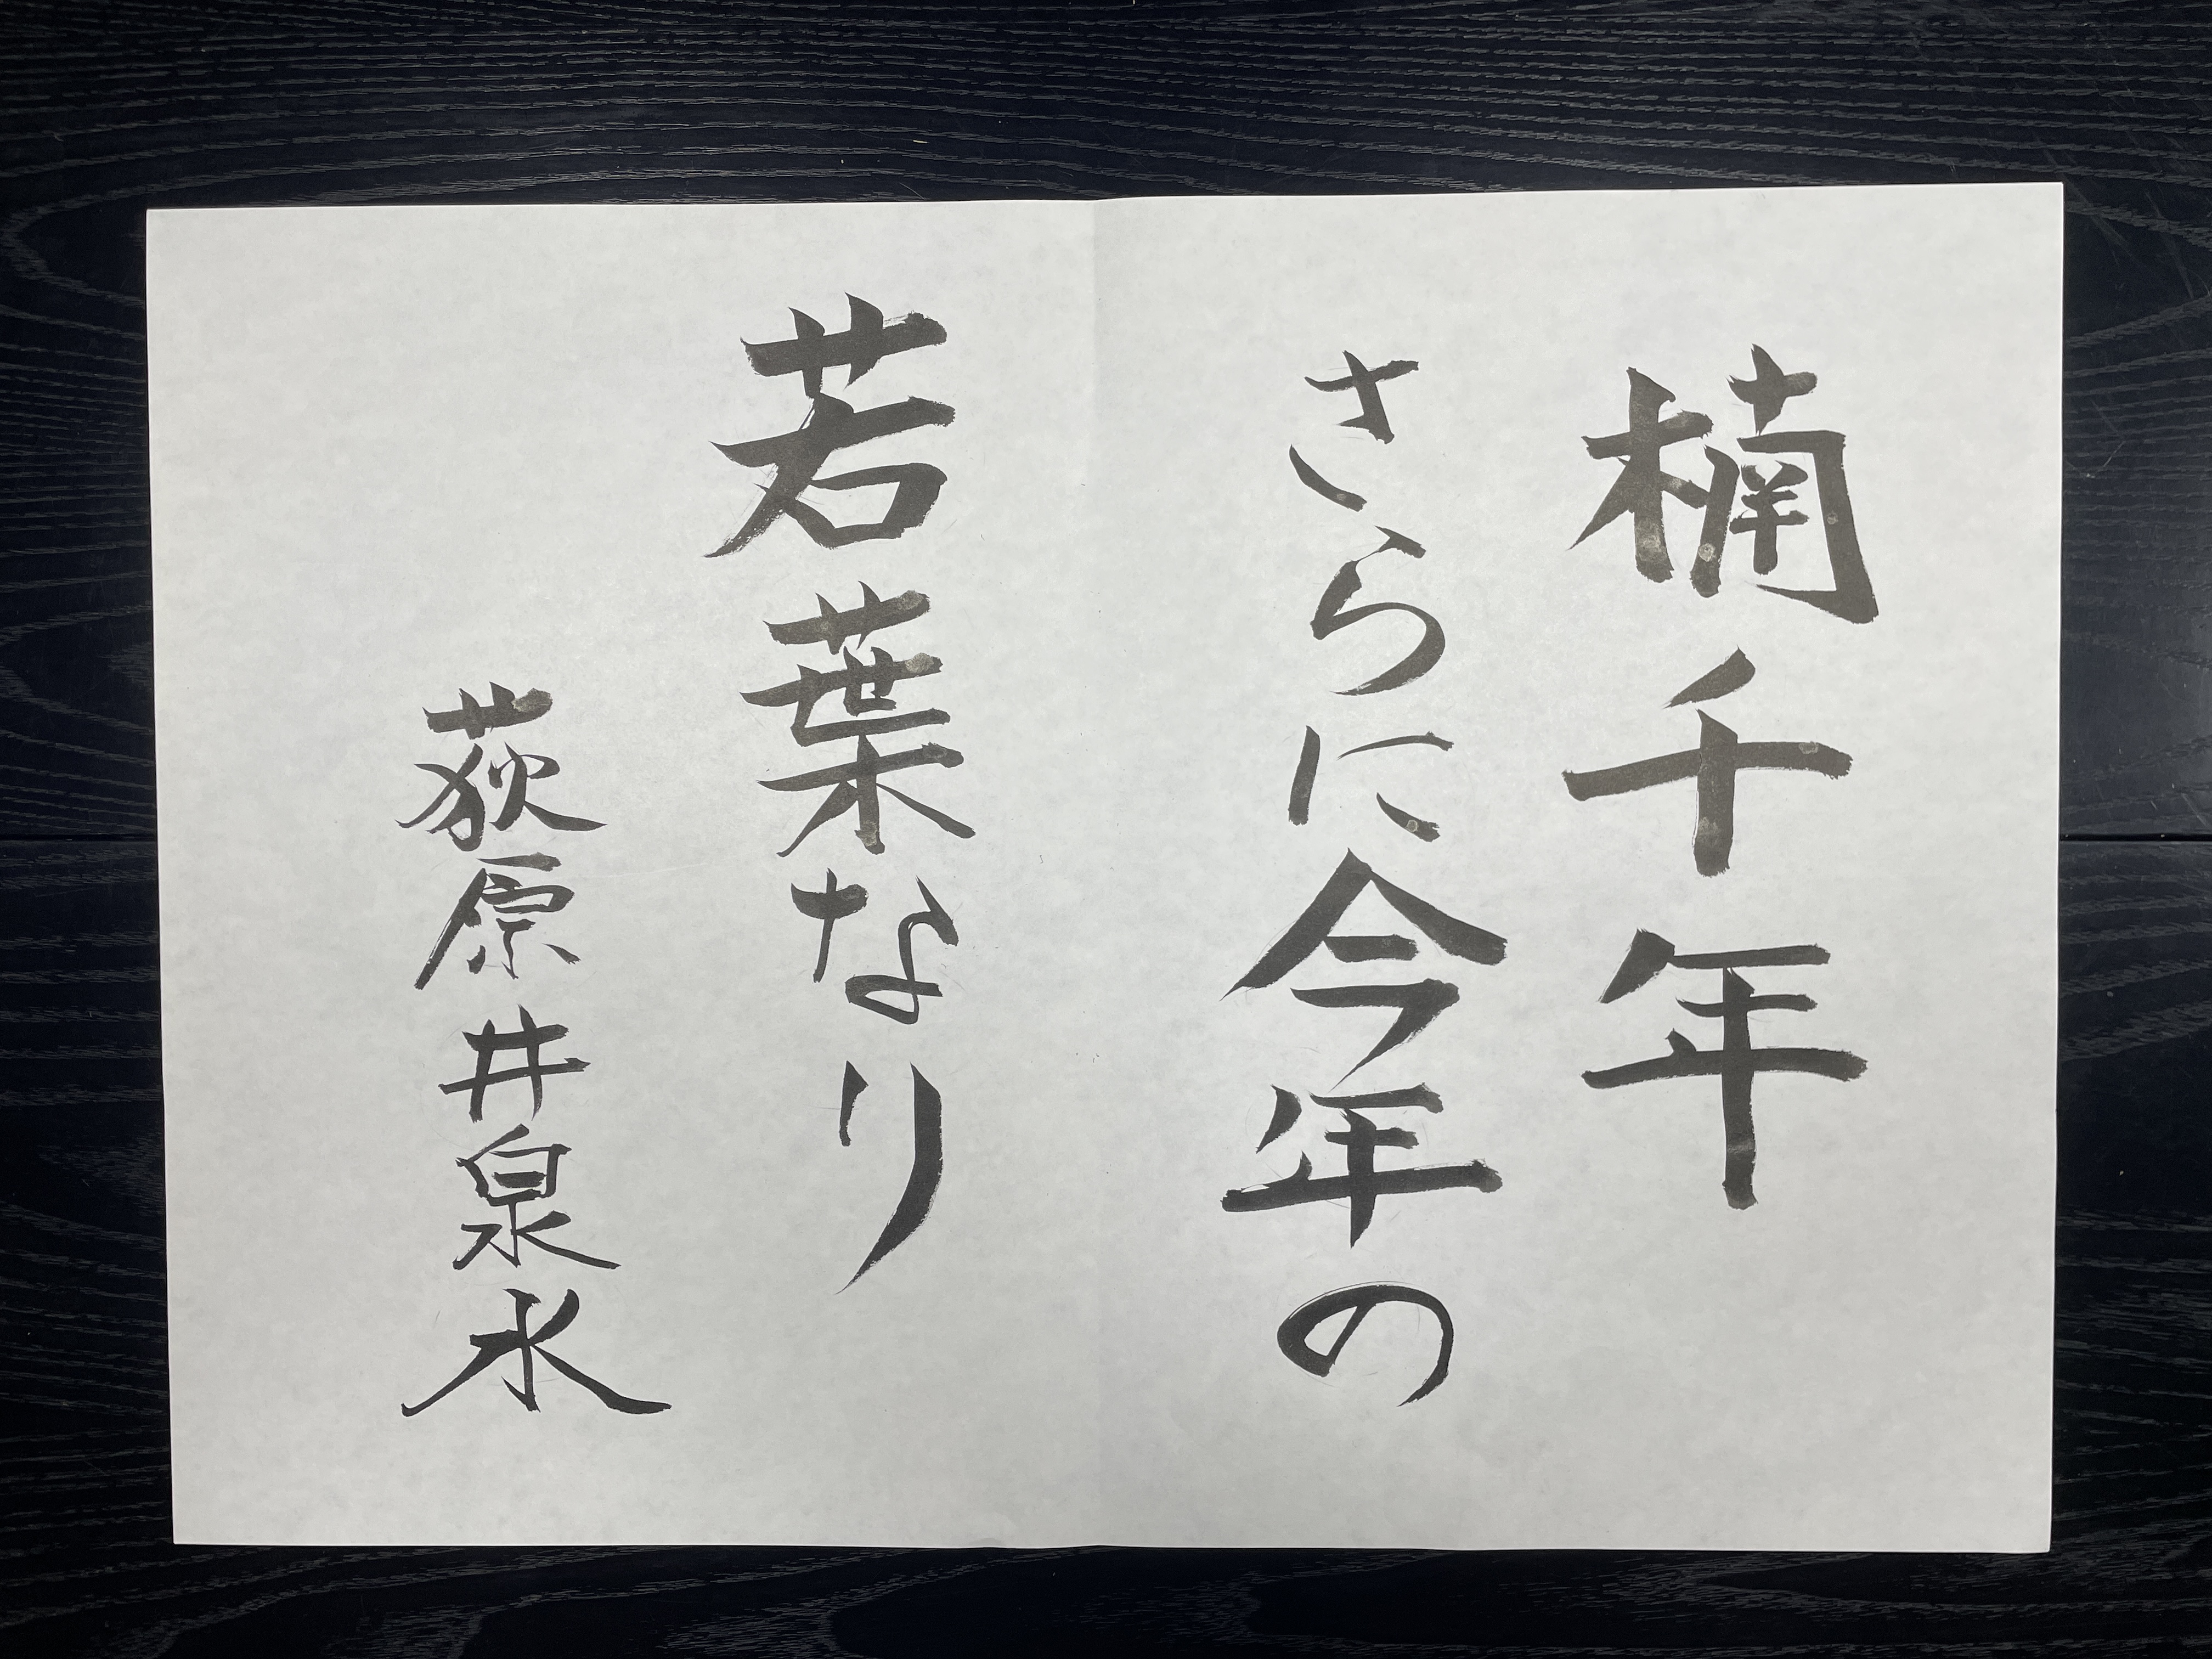 楠千年
さらに今年の
若葉なり
荻原井泉水